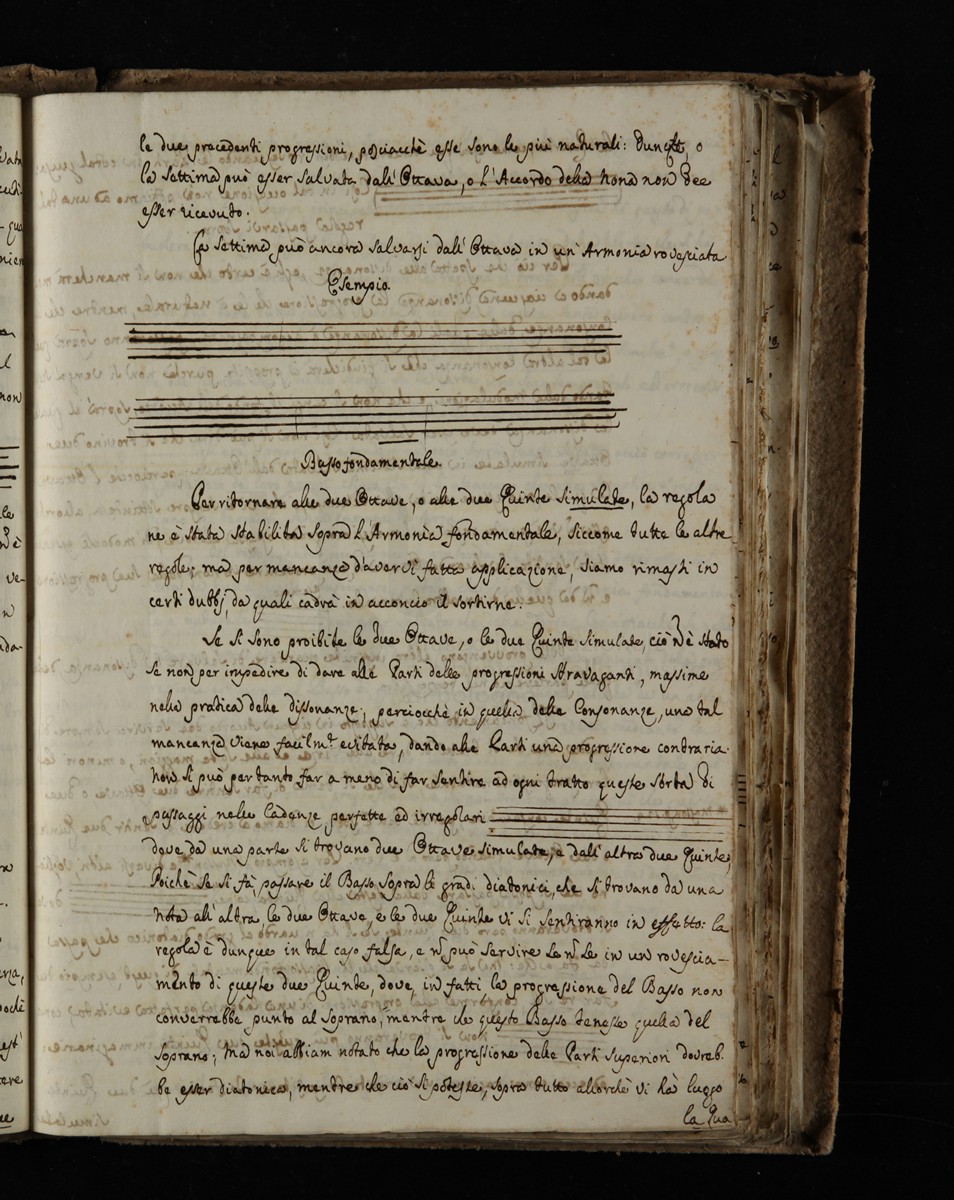 le due precedenti progressioni, posciacchè esse sono le più naturali: Dunq;e, o
la settima può esser salvata dall'Ottava, o l'Accordo della Nona non dee
esser ricevuto.
La settima può ancora salvarsi dall'Ottava in un'Armonia rovesciata
Esempio.
Basso fondamentale.
Per ritornare alle due Ottave, o alle due Quinte simulate, la regola
ne è stata stabilita sopra l'Armonia fondamentale, siccome tutte le altre
regole; ma per mancanza d'avervi fatta applicazione, siamo rimasti in
certi dubbj, da quali cadrà in acconcio il sortirne.
Se si sono proibite le due Ottave, o le due Quinte simulate, ciò n'è stato
se non per impedire di dare alle Parti delle progressioni stravaganti, massime
nella pratica delle dissonanze; perciocchè in quella delle Consonanze, una tal
mancanza viene facilm.te evitata, dando alle Parti una progressione contraria.
Non si può per tanto far a meno di far sentire ad ogni tratto queste sorta di
passaggi nelle Cadenze perfette ed irregolari
dove da una parte si trovano due Ottave simulate, e dall'altra due Quinte;
Poichè se si fà passare il Basso sopra li gradi diatonici, che si trovano da una
nota all'altra le due Ottave, e le due Quinte vi si sentiranno in effetto: la
regola è dunque in tal caso falsa, e n̄ può servire se n̄ se in un rovescia-
mento di queste due Quinte, dove, in fatti, la progressione del Basso non
converrebbe punto al Soprano, mentre che questo Basso tenesse quella del
Soprano; Ma noi abbiam notato che la progressione delle Parti Superiori dovreb.
be esser diatonica, mentre che ciò si potesse, sopra tutto allorchè vi hà luogo
la Qua